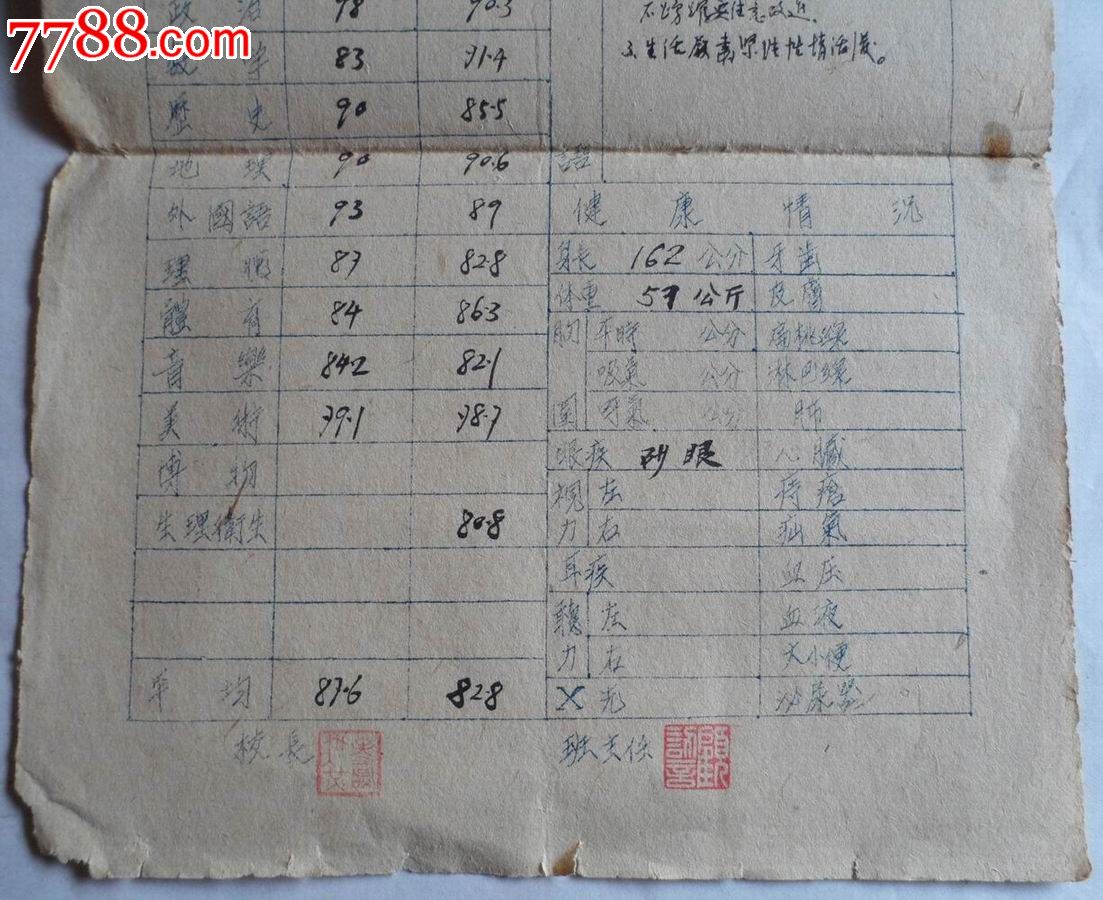 7788.com
政治 78 90.3
数学 83 71.4
歷史 90 85.5
地理 90 90.6
外國語 93 89
理化 87 82.8
體育 84 86.3
音樂 84.2 82.1
美術 79.1 78.7
博物
生理衛生 80.8
平均 87.6 82.8
校長
3、生活嚴肅緊張性情活潑。
語
健康情況
身長 162 公分 牙齒
体重 57 公斤 皮膚
胸 平時 公分 扁桃線
吸氣 公分 淋巴線
圍 呼氣 公分 肺
眼疾 砂眼 心臟
視 左 痔瘡
力 右 疝氣
耳疾 血压
聽 左 血液
力 右 大小便
X光 泌尿器
班主任